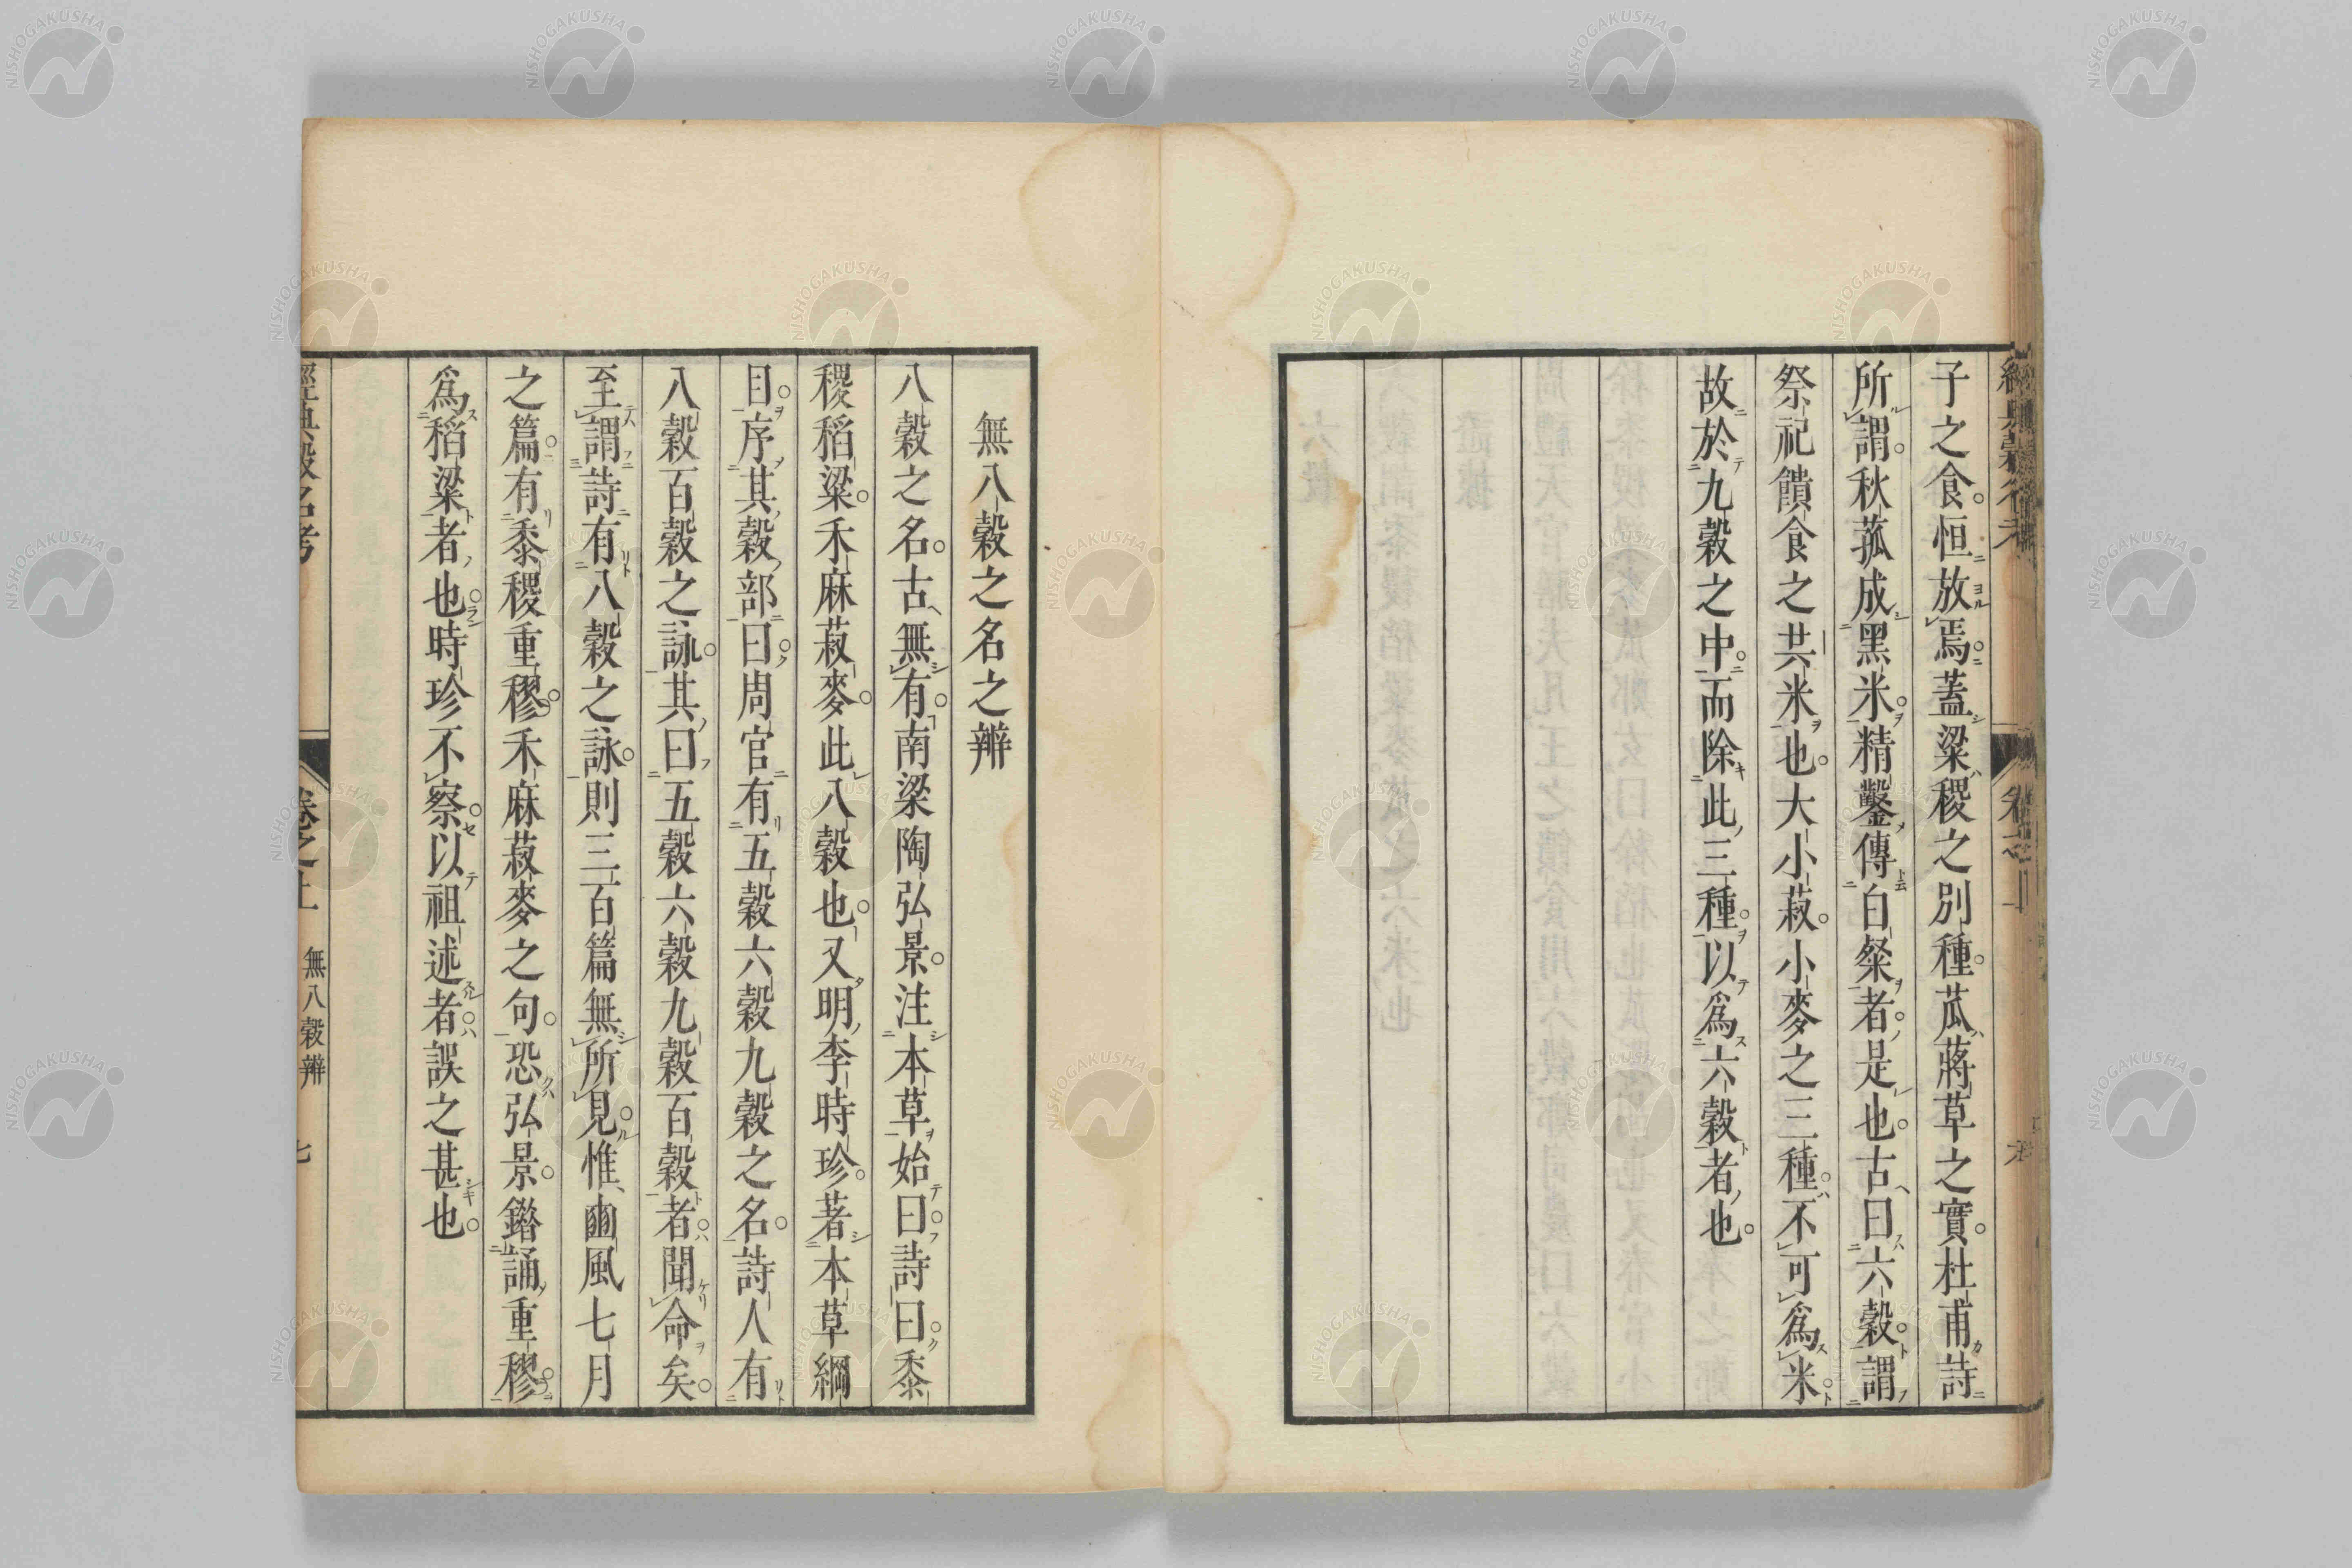 子之食恒放焉蓋粱稷之別種苽蔣草之實杜甫詩
所謂秋菰成黑米精鑿傳白粲者是也古曰六穀謂
祭祀饋食之共米也大小菽小麥之三種不可爲米
故於九穀之中而除此三種以爲六穀者也
無八穀之名之辨
八穀之名古無有南梁陶弘景注本草始曰詩曰黍
稷稻粱禾麻菽麥此八穀也又明李時珍著本草綱
目序其穀部曰周官有五穀六穀九穀之名詩人有
八穀百穀之詠其曰五穀六穀九穀百穀者聞命矣
至謂詩有八穀之詠則三百篇無所見惟豳風七月
之篇有黍稷重穋禾麻菽麥之句恐弘景鐕誦重穋
爲稻粱者也時珍不察以祖述者誤之甚也
經典穀名考 卷之上 無八穀辨 七